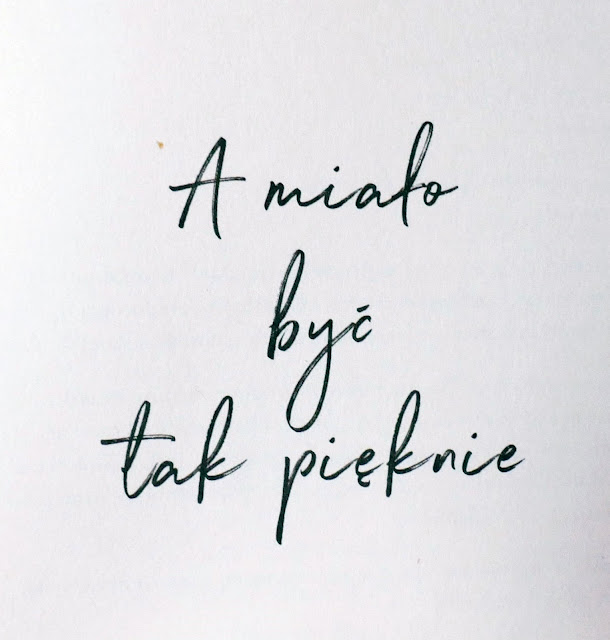 A miało
być
tak pięknie